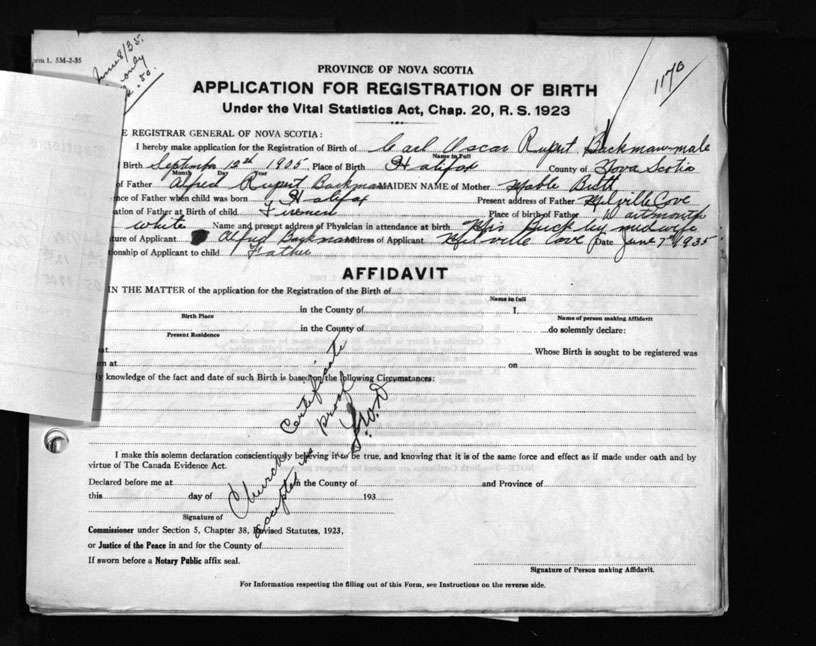 orm 1. 5M-2-35
June 8/35.
only
.50.
1170
PROVINCE OF NOVA SCOTIA
APPLICATION FOR REGISTRATION OF BIRTH
Under the Vital Statistics Act, Chap. 20, R. S. 1923
E REGISTRAR GENERAL OF NOVA SCOTIA:
I hereby make application for the Registration of Birth of Carl Oscar Rupert Backman-male
Name in Full
Birth September 12th 1905, Place of Birth Halifax County of Nova Scotia
Month Day Year
of Father Alfred Rupert Backman MAIDEN NAME of Mother Mable
nce of Father when child was born Halifax Present address of Father Melville Cove
ation of Father at Birth of child Firemen Place of birth of Father Dartmouth
white Name and present address of Physician in attendance at birth midwife
ture of Applicant Alfred Backman address of Applicant Melville Cove Date June 7th 1935
tionship of Applicant to child Father
AFFIDAVIT
IN THE MATTER of the application for the Registration of the Birth of
Name in full
in the County of I,
Birth Place Name of person making Affidavit
in the County of do solemnly declare:
Present Residence
at Whose Birth is sought to be registered was
n at on
y knowledge of the fact and date of such Birth is based on the following Circumstances:
Church Certificate
accepted as proof
I make this solemn declaration conscientiously believing it to be true, and knowing that it is of the same force and effect as if made under oath and by
virtue of The Canada Evidence Act.
Declared before me at in the County of and Province of
this day of 193
Signature of
Commissioner under Section 5, Chapter 38, Revised Statutes, 1923,
or Justice of the Peace in and for the County of
If sworn before a Notary Public affix seal.
Signature of Person making Affidavit.
For Information respecting the filling out of this Form, see Instructions on the reverse side.